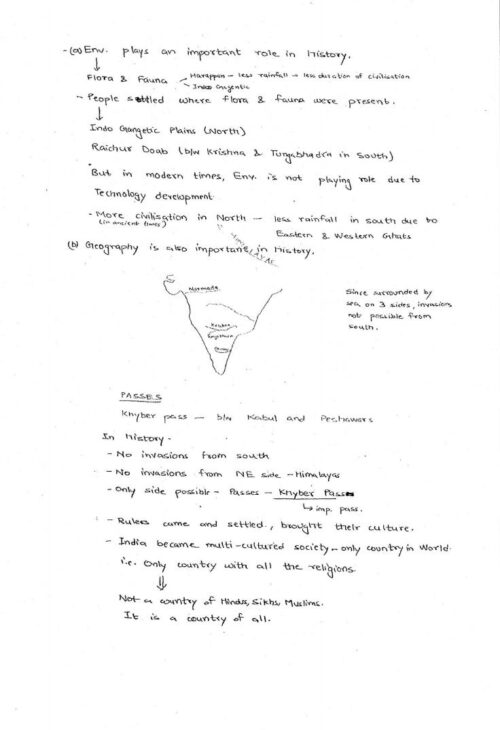 - (a) Env. plays an important role in History.
↓
Flora & Fauna - Harappan - less rainfall → less duration of civilisation
- Indo Gangetic
- People settled where flora & fauna were present.
↓
Indo Gangetic Plains (North)
Raichur Doab (b/w Krishna & Tungabhadra in South)
But in modern times, Env. is not playing role due to
Technology development
- More civilisation in North - less rainfall in south due to
(in ancient times)
Eastern & Western Ghats
HIMALAYAS
(b) Geography is also important in History.
Narmada
Krishna
Since surrounded by
sea on 3 sides, invasions
not possible from
south.
PASSES
Khyber pass - b/w Kabul and Peshawars
In History -
- No invasions from south
- No invasions from NE side - Himalayas
- Only side possible - Passes - Khyber Passes
↳ imp. pass.
- Rulers came and settled, brought their culture.
- India became multi-cultured society - only country in World.
i.e. Only country with all the religions.
⇓
Not a country of Hindus, Sikhs, Muslims.
It is a country of all.